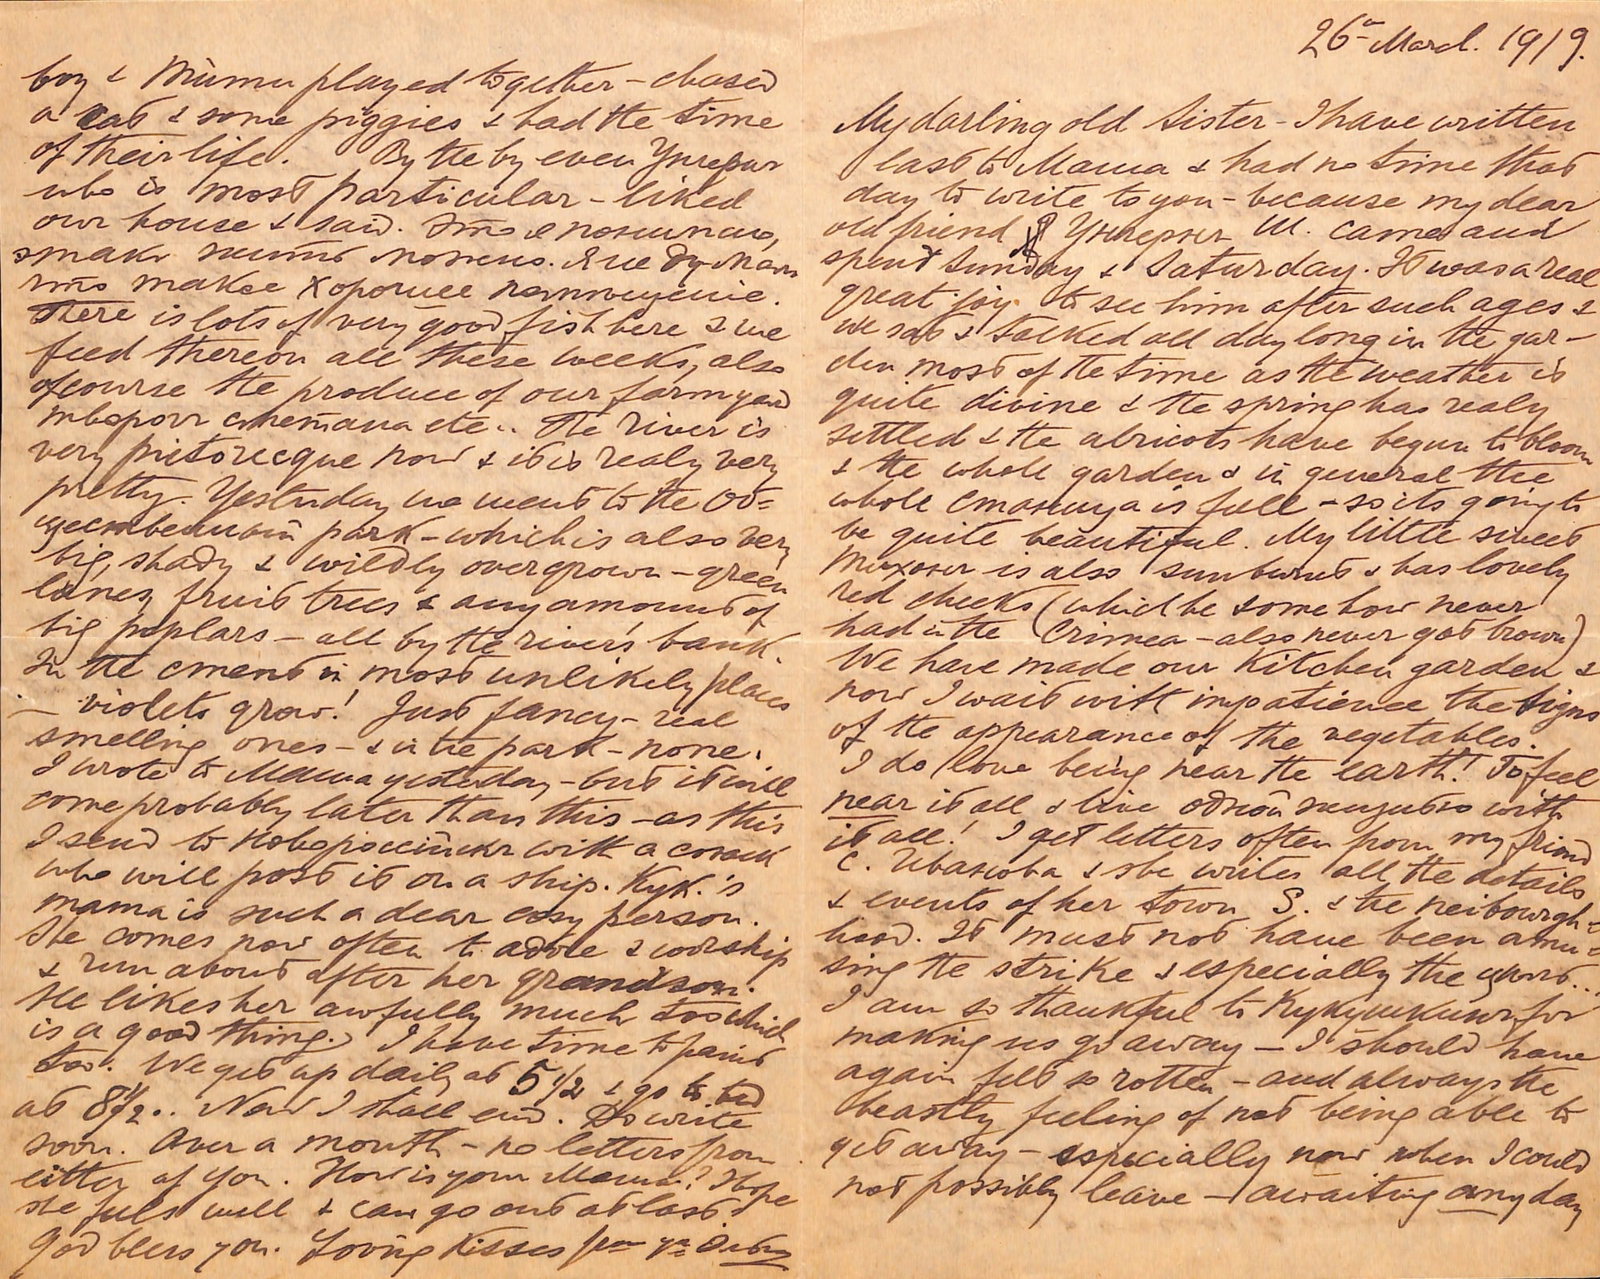 26th March. 1919.
My darling old Sister - I have written
last to Mama & had no time that
day to write to you - because my dear
old friend came and
spent Sunday & Saturday. It was a real
great joy to see him after such ages &
we sat & talked all day long in the gar-
den most of the time as the weather is
quite divine & the spring has realy
settled & the abricots have begun to bloom
& the whole garden & in general the
whole станица is full - so its going to
be quite beautiful. My little sweet
is also sunburnt & has lovely
red cheeks (which he somehow never
had in the Crimea - also never got brown)
We have made our Kitchen garden &
now I wait with impatience the signs
of the appearance of the vegetables.
I do love being near the earth! To feel
near it all & live одной жизнью with
it all! I get letters often from my friend
C. Иванова & she writes all the details
& events of her town S. & the neibourgh-
hood. It must not have been amu-
sing the strike & especially the
I am so thankful to for
making us go away - I should have
again felt so rotten - and always the
beastly feeling of not being able to
get away - especially now when I could
not possibly leave - awaiting any day
boy & played together - chased
a cat & some piggies & had the time
of their life. By the by even
who is most particular - liked
our house & said. это
мака
это также хорошее помещение.
There is lots of very good fish here & we
feed thereon all these weeks, also
ofcourse the produce of our farmyard
творог сметана etc.. The river is
very pictorecque now & it is realy very
pretty. Yesterday we went to the Об-
щественный park - which is also very
big, shady & wildly overgrown - green
lanes, fruit trees & any amount of
big poplars - all by the river's bank.
In the in most unlikely places
- violets grow! Just fancy - real
smelling ones - & in the park - none.
I wrote to Mama yesterday - but it will
come probably later than this - as this
I send to Новороссийск with a cosack
who will post it on a ship. Кук.'s
mama is such a dear cosy person.
She comes now often to adore & worship
& run about after her grandson.
He likes her awfully much too which
is a good thing. I have time to paint
too. We get up daily at 5 1/2 & go to bed
at 8 1/2.. Now I shall end. Do write
soon. Over a month - no letters from
either of you. How is your Mama? I hope
she feels well & can go out at last?
God bless you. Loving Kisses from yr